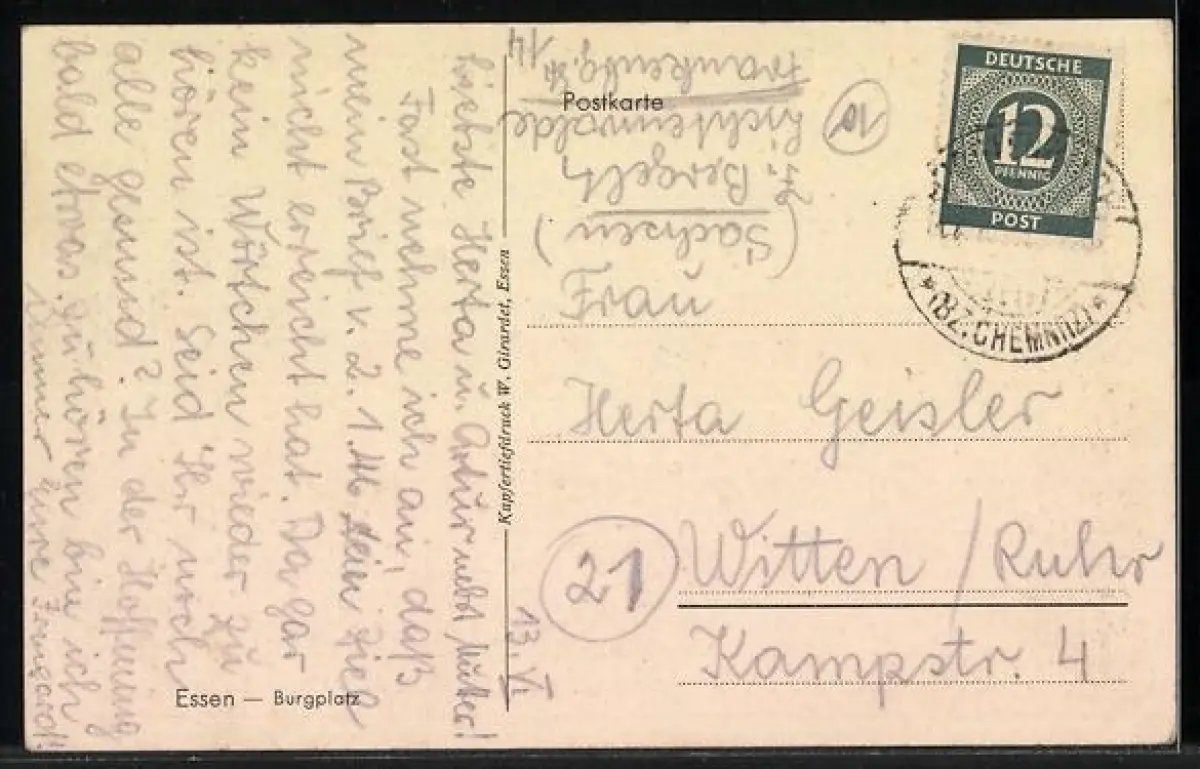 Liebste Herta u. Artur nebst Mutter!
Fast nehme ich an, daß
mein Brief v. 2. 1. 46 sein Ziel
nicht erreicht hat. Da gar
kein Wörtchen wieder zu
hören ist. Seid Ihr noch
alle gesund? In der Hoffnung
bald etwas zu hören bin ich
immer Eure Irmgard!
Essen — Burgplatz
13. VI.
Kupfertiefdruck W. Girardet, Essen
Postkarte
14
Frankenbg.
Lichtenwalde
(Sachsen)
10
DEUTSCHE
12
PFENNIG
POST
*(BZ. CHEMNITZ)*
Frau
Herta Geisler
21
Witten/Ruhr
Kampstr. 4